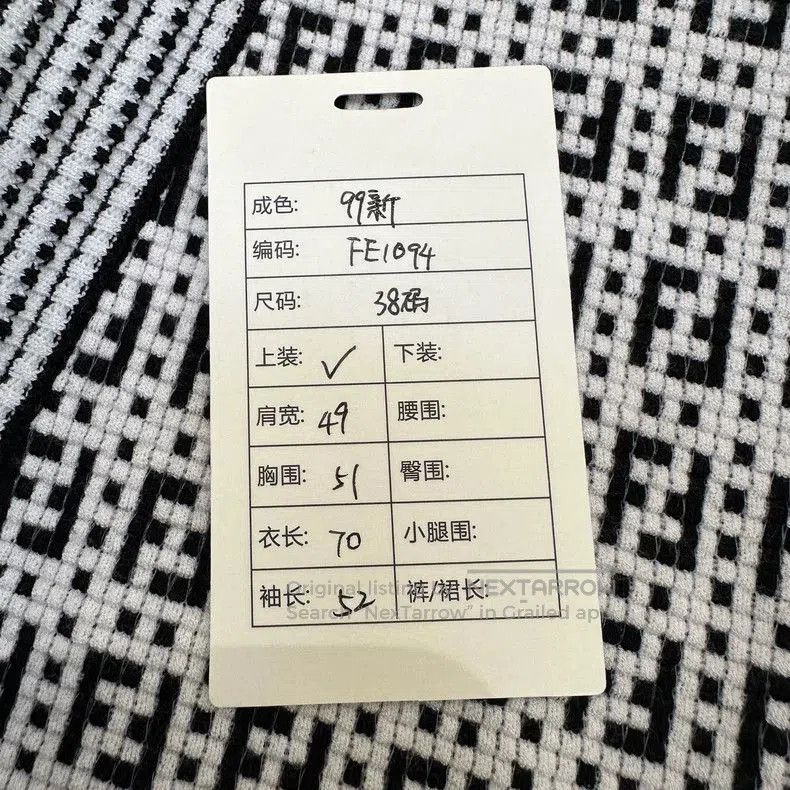 成色: 99新
编码: FE1094
尺码: 38码
上装: ✓ 下装:
肩宽: 49 腰围:
胸围: 51 臀围:
衣长: 70 小腿围:
袖长: 52 裤/裙长:
Original listing by NEXTARROW
Search "NexTarrow" in Grailed app